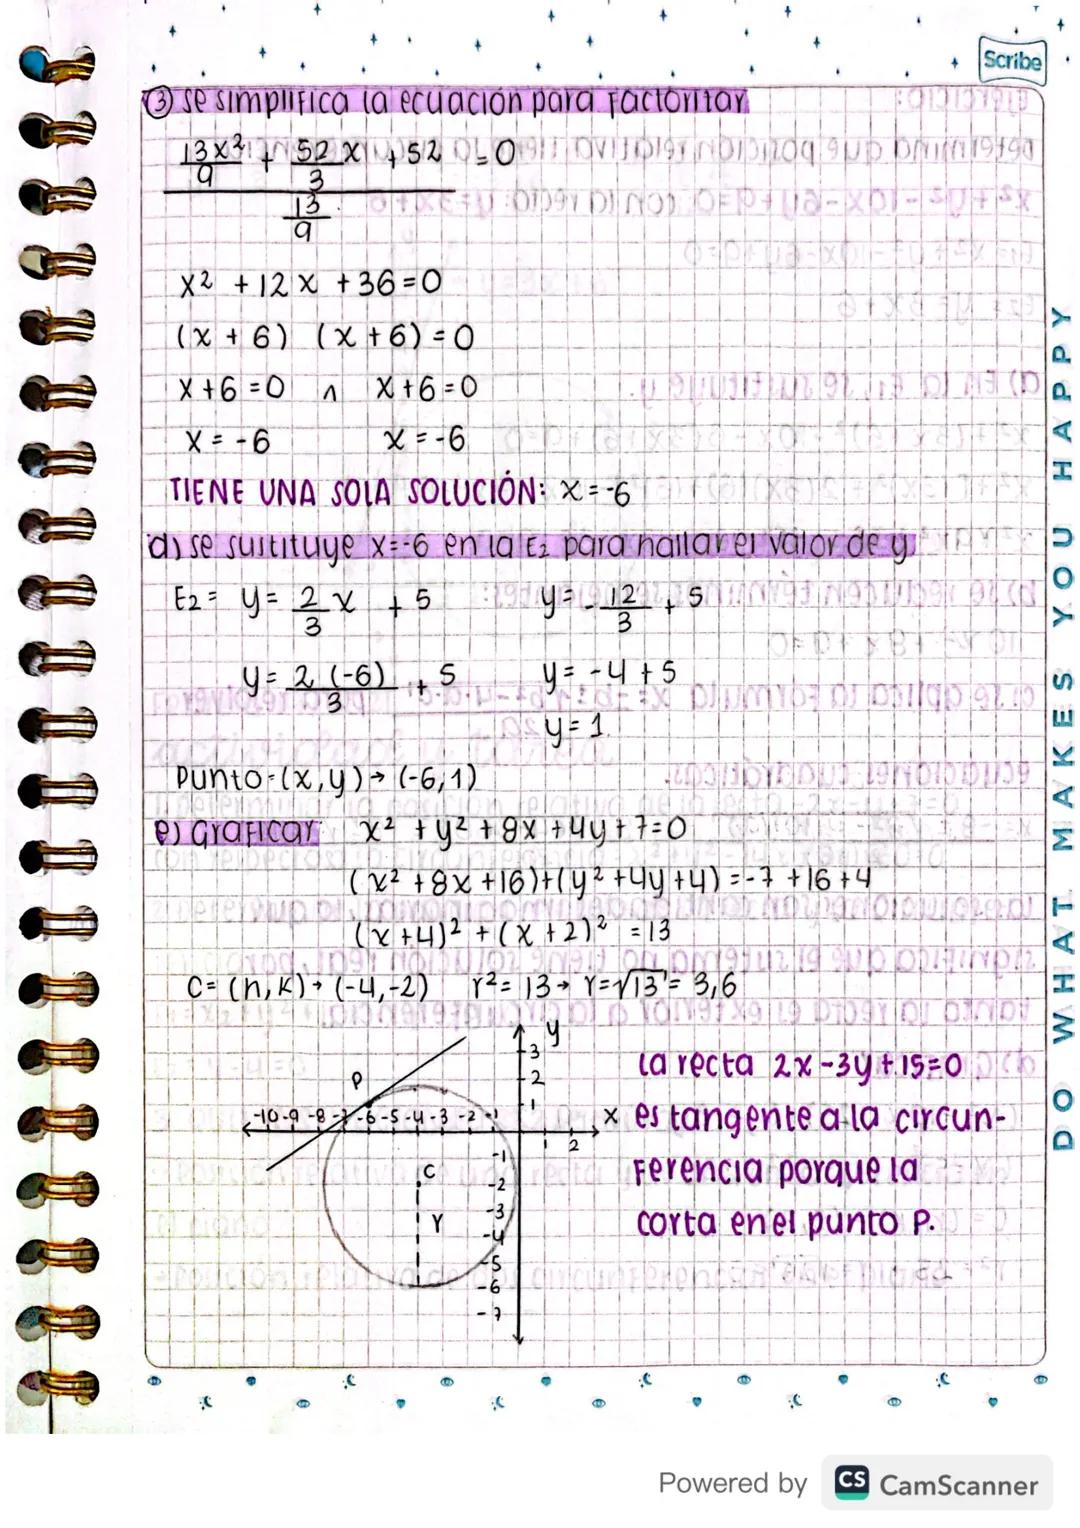 Scribe
③ se simplifica la ecuación para factorizar
13x²/9 + 52/3 x + 52 = 0
13/9
x² + 12x + 36 = 0
(x + 6) (x + 6) = 0
x + 6 = 0 ∧ x + 6 = 0
x = -6 x = -6
TIENE UNA SOLA SOLUCIÓN: x = -6
d) se sustituye x=-6 en la E₂ para hallar el valor de y.
E₂ = y = 2/3 x + 5 y = - 12/3 + 5
y = 2 (-6)/3 + 5 y = -4 + 5
y = 1.
Punto = (x, y) → (-6, 1)
e) Graficar: x² + y² + 8x + 4y + 7 = 0
(x² + 8x + 16) + (y² + 4y + 4) = -7 + 16 + 4
(x + 4)² + (x + 2)² = 13
C = (h, k) → (-4, -2) r² = 13 → r = √13 = 3,6
y
3
2
1
P
-10 -9 -8 -7 -6 -5 -4 -3 -2 -1
1 2
x
-1
-2
-3
-4
-5
-6
-7
C
r
la recta 2x - 3y + 15 = 0
es tangente a la circun-
ferencia porque la
corta en el punto P.
DO WHAT MAKES YOU HAPPY
Powered by CS CamScanner